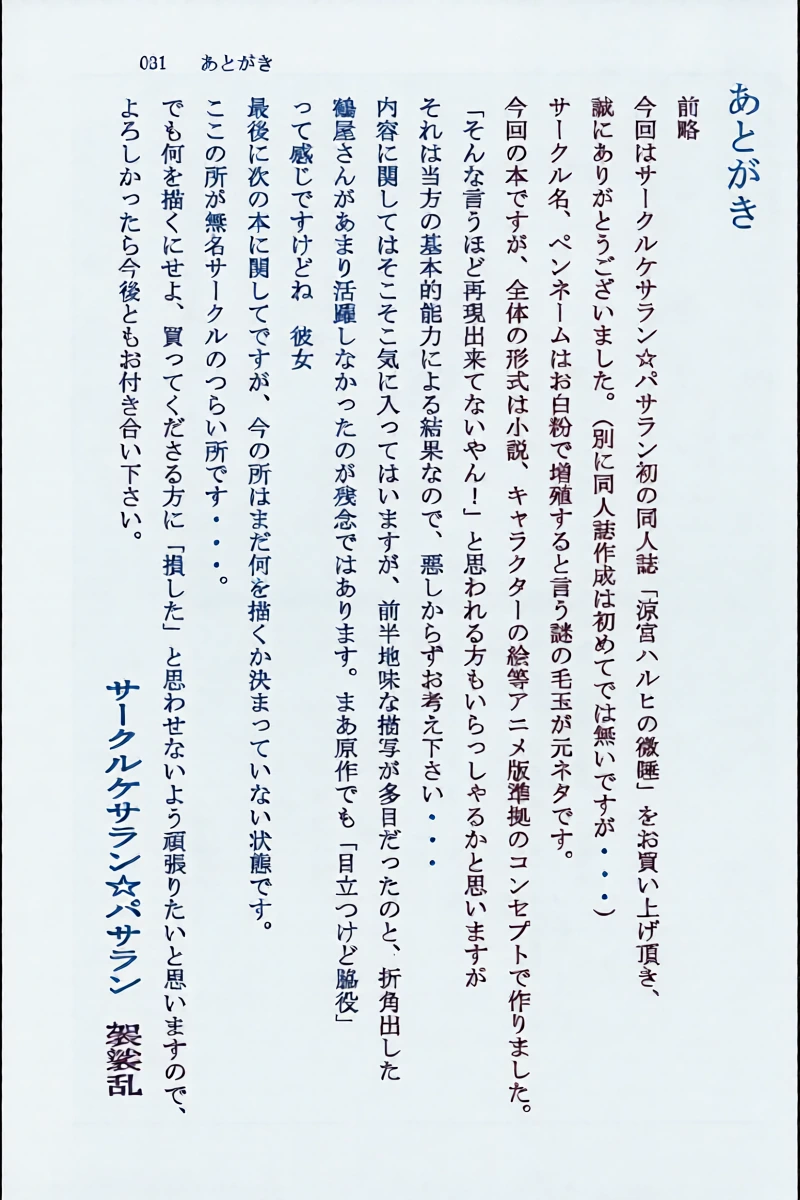 031 あとがき
あとがき
前略
今回はサークルケサラン☆パサラン初の同人誌「涼宮ハルヒの微睡」をお買い上げ頂き、
誠にありがとうございました。(別に同人誌作成は初めてでは無いですが・・・)
サークル名、ペンネームはお白粉で増殖すると言う謎の毛玉が元ネタです。
今回の本ですが、全体の形式は小説、キャラクターの絵等アニメ版準拠のコンセプトで作りました。
「そんな言うほど再現出来てないやん！」と思われる方もいらっしゃるかと思いますが
それは当方の基本的能力による結果なので、悪しからずお考え下さい・・・
内容に関してはそこそこ気に入ってはいますが、前半地味な描写が多目だったのと、折角出した
鶴屋さんがあまり活躍しなかったのが残念ではあります。まあ原作でも「目立つけど脇役」
って感じですけどね　彼女
最後に次の本に関してですが、今の所はまだ何を描くか決まっていない状態です。
ここの所が無名サークルのつらい所です・・・。
でも何を描くにせよ、買ってくださる方に「損した」と思わせないよう頑張りたいと思いますので、
よろしかったら今後ともお付き合い下さい。
サークルケサラン☆パサラン　袈裟乱